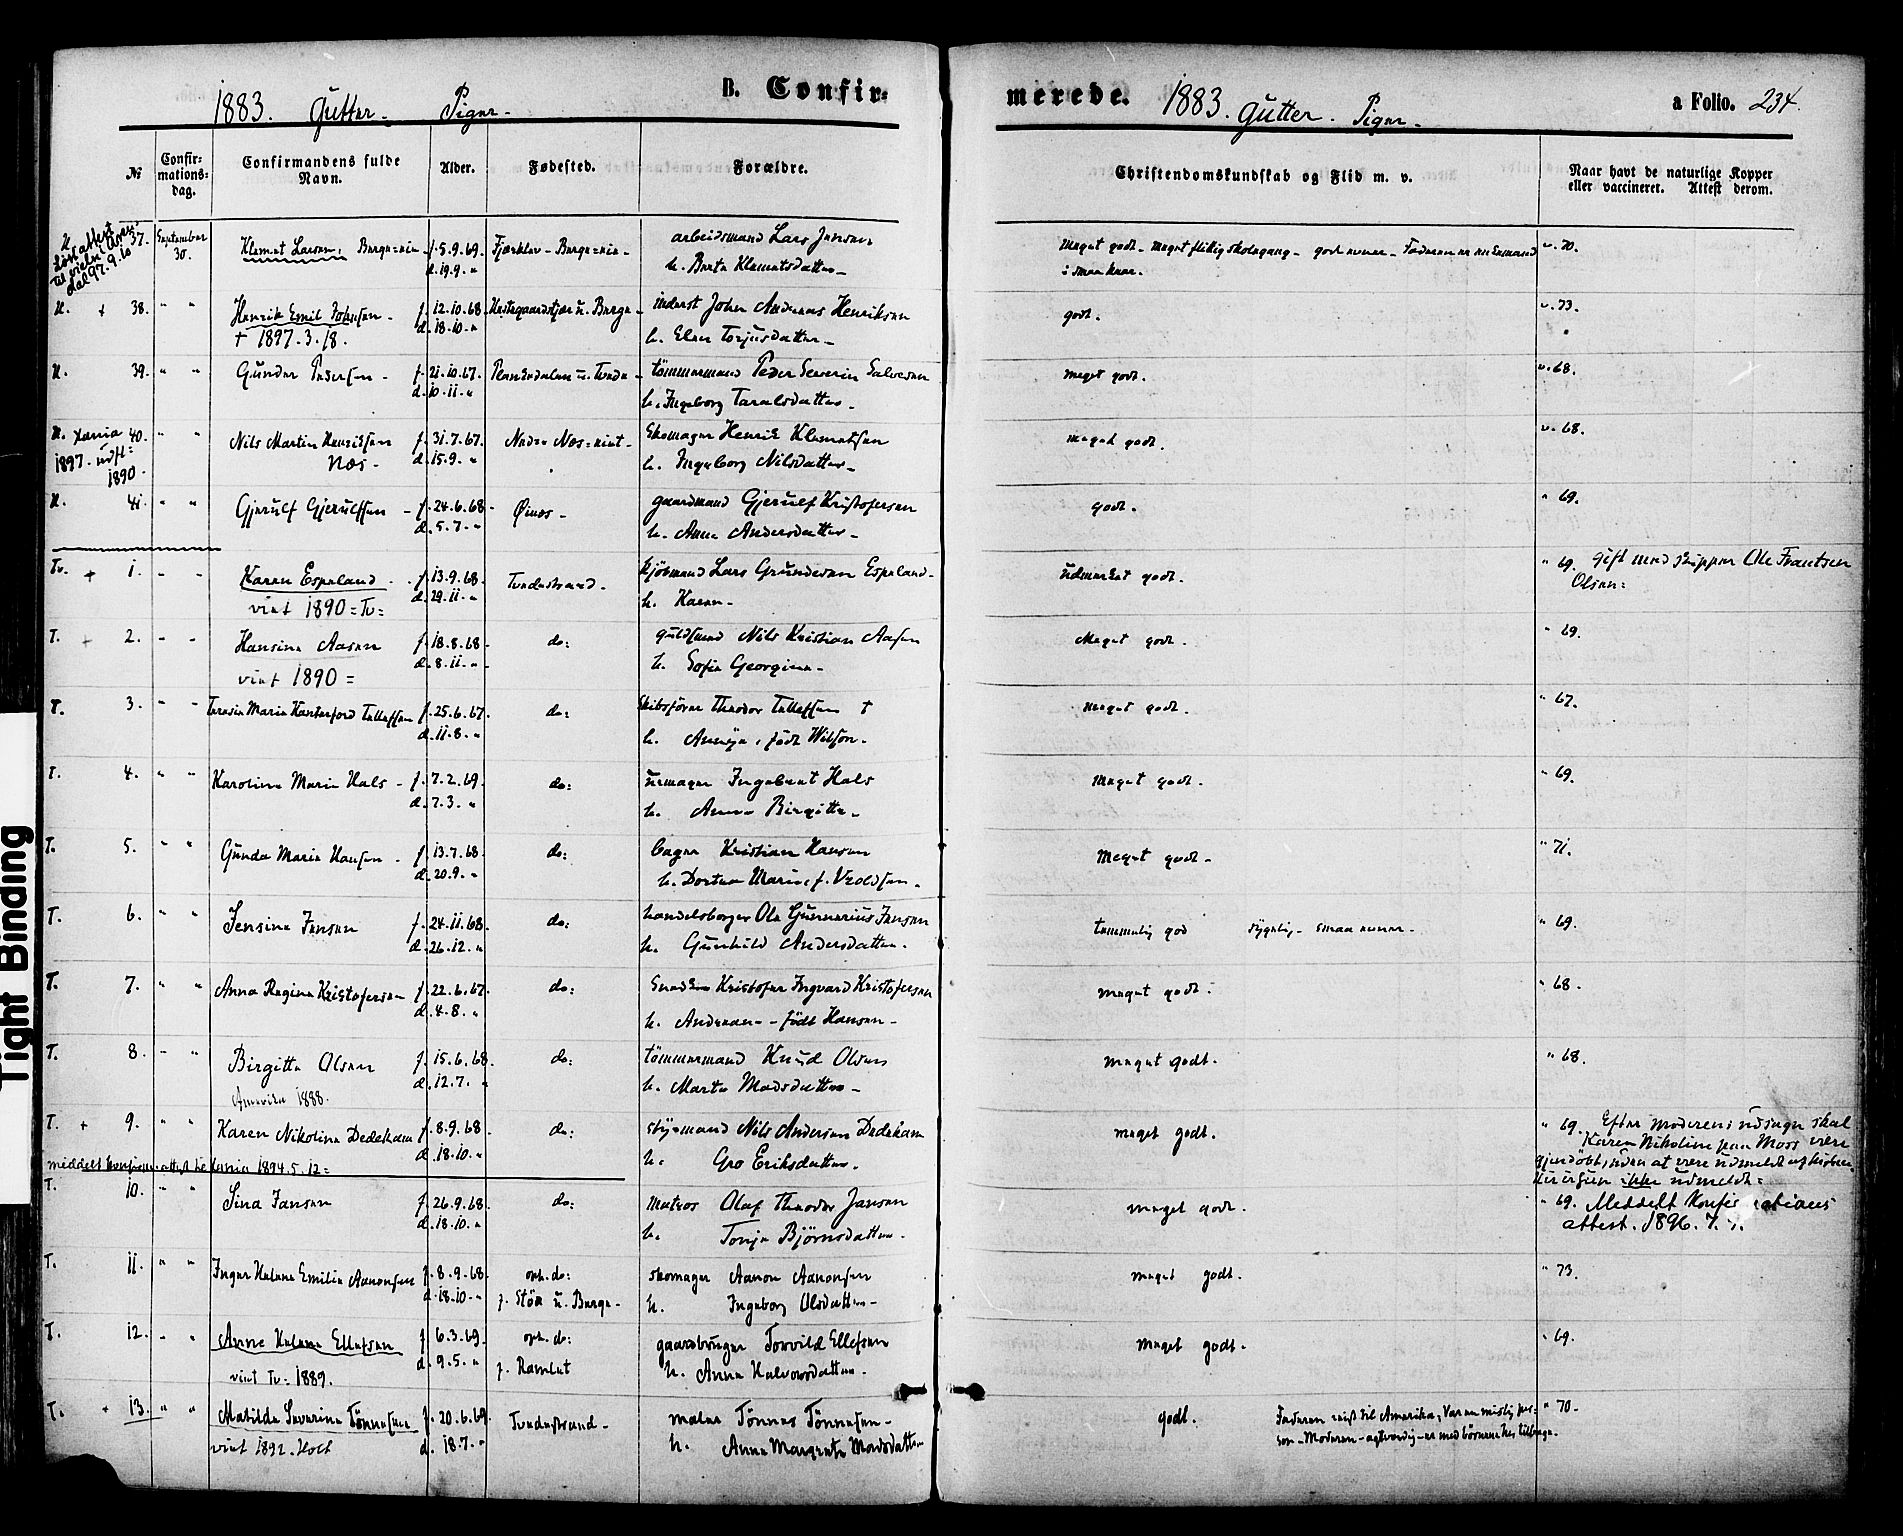 1883. Gutter. Piger. B. Confir=
merede. 1883. Gutter. Piger. a Folio. 234.
№ Confir=mations=dag. Confirmandens fulde Navn. Alder. Fødested. Forældre.
Christendomskundskab og Flid m. v. Naar havt de naturlige Kopper eller vaccineret. Attest derom.
37. September 30. Klemet Larsen, f. 5.9.69. arbeidsmand Lars Jensen meget godt v. 70.
d. 19.9. " h. Berte Klemetsdatter i smaa kaar.
H. + 38. " " Henrik Emil Johnsen f. 12.10.68. inderst John Andreas Henriksen godt. v. 73.
+ 1897.3.18. d. 18.10. " h. Elen Torjusdatter
H. 39. " " Gunder Pedersen f. 21.10.67. tømmermand Peder Severin Salvesen meget godt. v. 68.
d. 10.11. " h. Ingeborg Taralsdatter
H. 40. " " Nils Martin Henriksen f. 31.7.67. Skomager Henrik Klemetsen meget godt. v. 68.
1897. udfl: 1890. Næs d. 15.9. " h. Ingeborg Nilsdatter
H. 41. " " Gjerulf Gjerulfsen f. 24.6.68. gaardmand Gjerulf Kristofersen godt. " 69.
d. 5.7. " h. Anne Andersdatter
Tv. + 1. Karen Espeland f. 13.9.68. Tvedestrand kjøbmand Lars Gundersen Espeland udmerket godt. " 69. gift med skipper Ole Frantsen
viet 1890 = Tv= d. 29.11. " h. Karen Olsen:
T. + 2. Hansine Aasen f. 18.8.68 do: guldsmed Nils Kristian Aasen Meget godt. " 69.
viet 1890 = d. 8.11. " h. Sofie Georgine
T. 3. Terese Marie Tellefsen f. 25.6.67. do: Skibsfører Theodor Tellefsen + meget godt. " 67.
d. 11.8. " h. født Wilson.
T. 4. " " Karoline Marie Hals f. 7.2.69. do: urmager Ingebret Hals meget godt. " 69.
d. 7.3. " h. Anne Birgitte
T. 5. " " Gunda Marie Hansen f. 13.7.68. do: bager Kristian Hansen Meget godt " 71.
d. 20.9. " h. Dortea Marie, f.
T. 6. " " Jensine Jensen f. 24.11.68. do: handelsborger Ole Gunnerius Jensen temmelig god sygelig smaa evner. " 69.
d. 26.12. " h. Gunhild Andersdatter.
T. 7. " " Anna Regine Kristofersen f. 22.6.67. do: Snedker Kristofer Ingvard Kristofersen meget godt. " 68.
d. 4.8. " h. Andrea født Hansen
T. 8. Birgitte Olsen f. 15.6.68. do: tømmermand Knud Olsen meget godt. " 68.
Amerika 1888. d. 12.7. " h. Marte Madsdatter
T. + 9. " " Karen Nikoline Dedekam f. 8.9.68. do: styrmand Nils Andersen Dedekam meget godt. " 69. Efter moderens udsagn skal
Karen Nikoline paa Moss være
d. 18.10. " h. Gro Eriksdatter.
gjendøbt, uden at være udmeldt af
middelt 1894.5.12= ikke udmeldt:
T. 10. Sina Jansen f. 26.9.68. do: matros Olaf Theodor Jansen meget godt. " 69. Meddelt
d. 18.10. " h. Tonje Bjørnsdatter. attest. 1896.7.
T. 11. " " Inger Helene Emilie Aanonsen f. 8.9.68. oph. do: skomager Aanon Aanonsen meget godt. " 73.
d. 18.10. " f. Støa u. Borge h. Ingeborg Olsdatter
T. 12. Anne Helene Ellefsen f. 6.3.69. oph. do: gaardbruger Torvild Ellefsen meget godt. " 69.
viet Tv= 1889. d. 9.5. " f. Ramlet h. Anne Halvorsdatter
T. + 13. " " Matilde Severine Tønnesen f. 20.6.69. Tvedestrand maler Tønnes Tønnesen godt. Faderen reist til Amerika, " 70.
viet 1892. Holt d. 18.7. " h. Anne Margrete Mordsdatter Moderen agtværdig er med børnene hos
Tight Binding